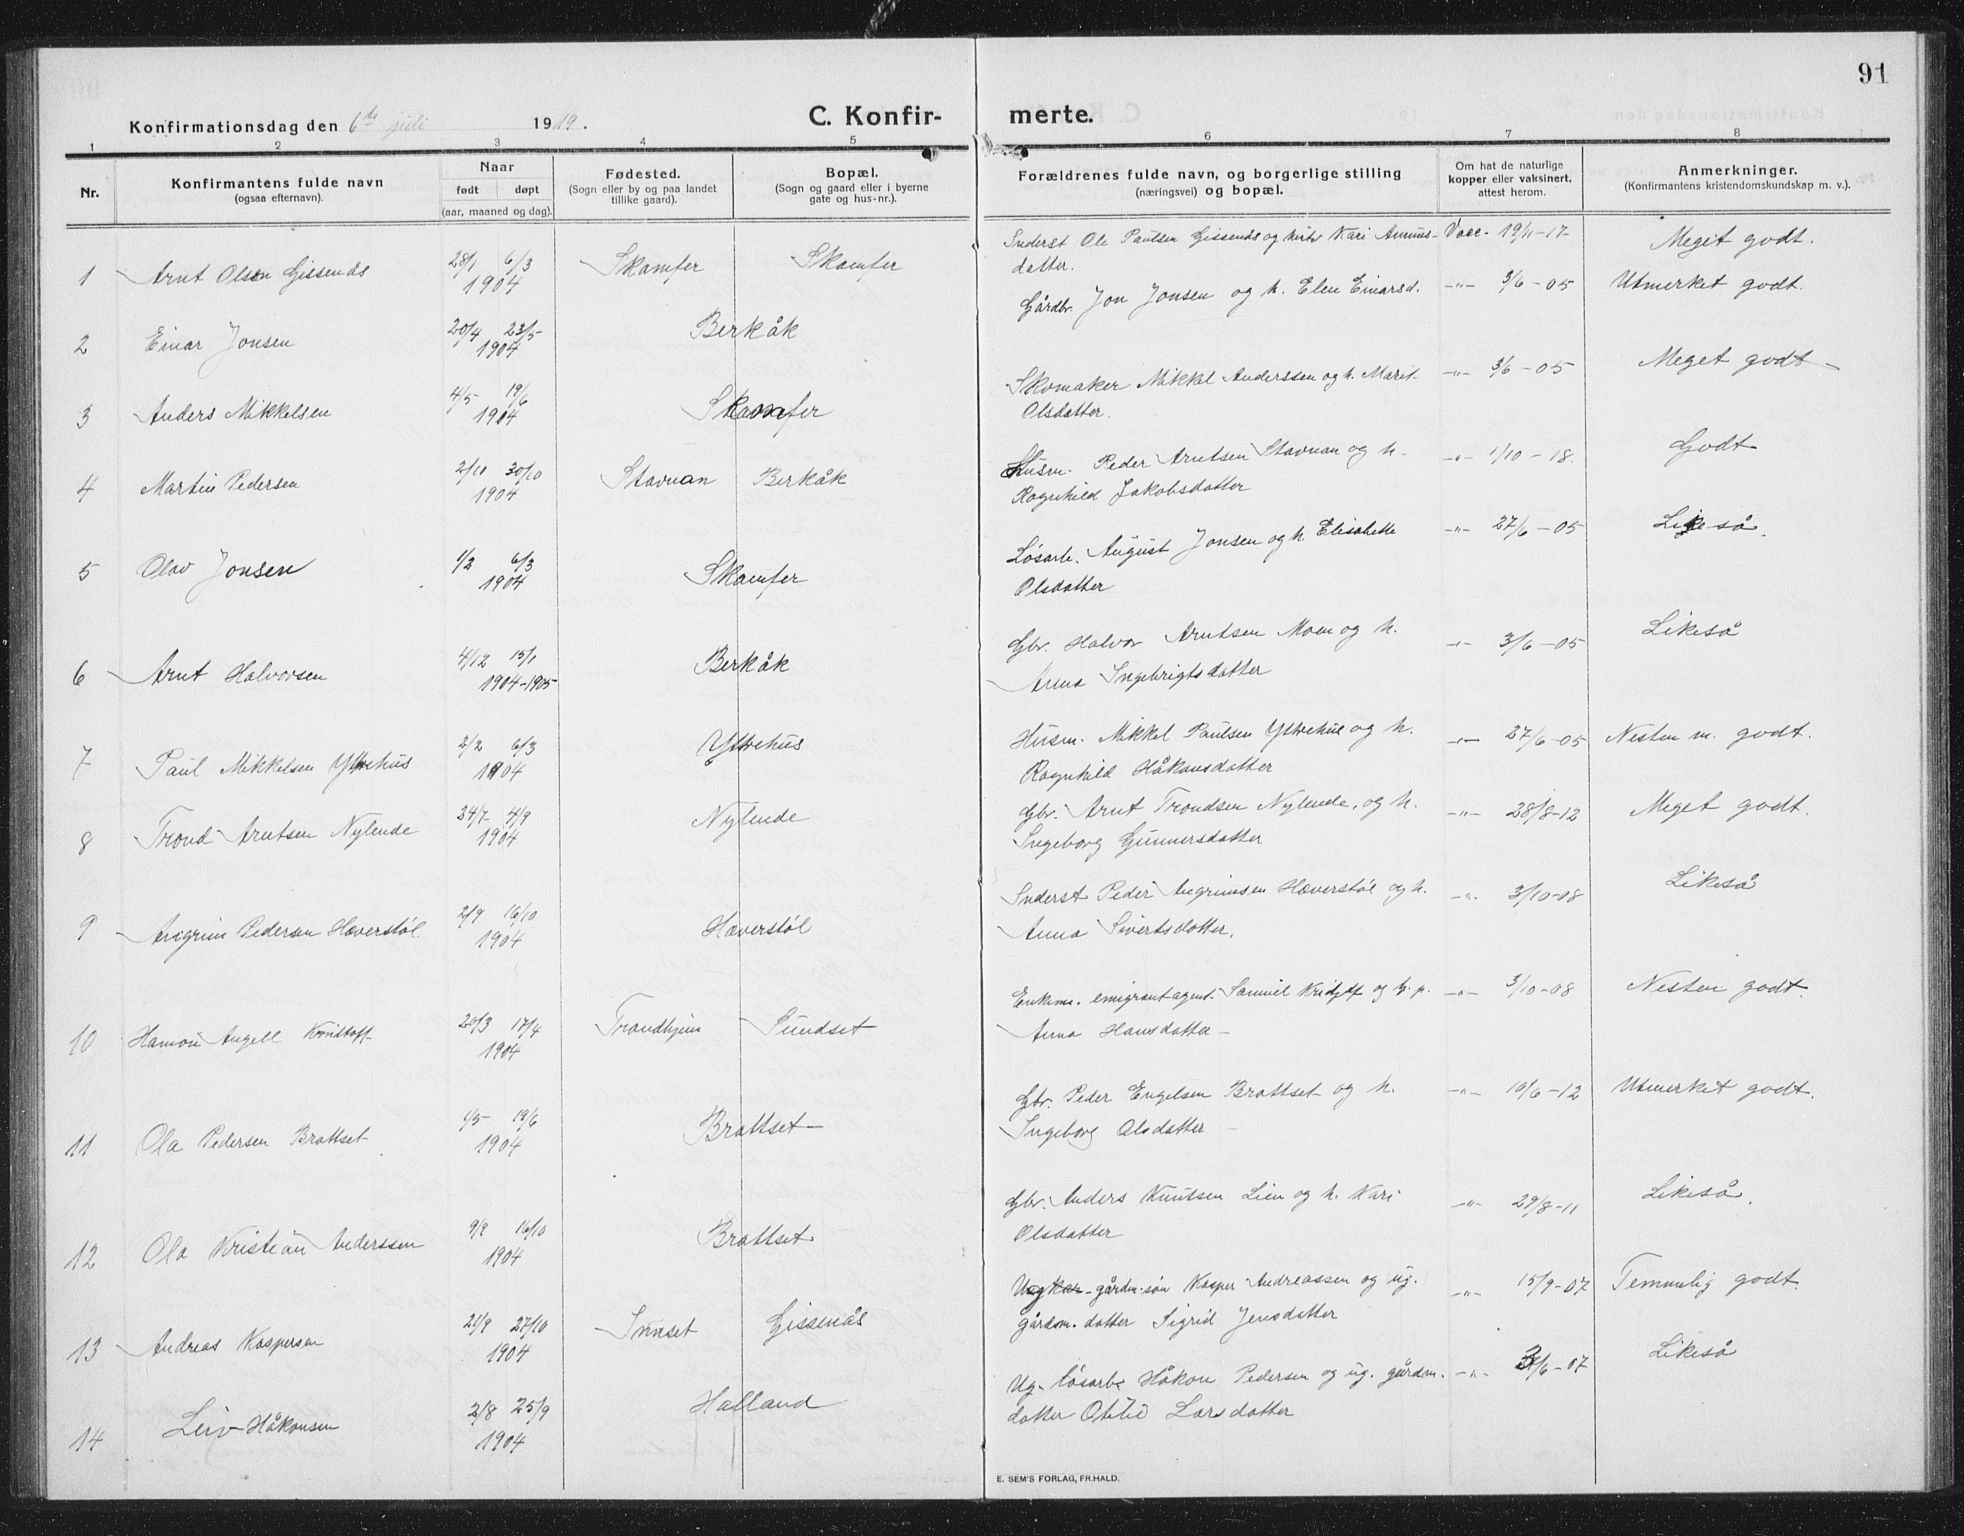 91
Konfirmationsdag den 6te juli 1919.
C. Konfir-
merte.
1 2 3 4 5 6 7 8
Nr.
Konfirmantens fulde navn
(ogsaa efternavn).
Naar
født døpt
(aar, maaned og dag).
Fødested.
(Sogn eller by og paa landet
tillike gaard).
Bopæl.
(Sogn og gaard eller i byerne
gate og hus-nr.).
Forældrenes fulde navn, og borgerlige stilling
(næringsvei) og bopæl.
Om hat de naturlige
kopper eller vaksinert,
attest herom.
Anmerkninger.
(Konfirmantens kristendomskundskap m. v.).
Inderst Ole Paulsen Gissenås og hustr Kari Arnns- Vacc. 19/11-17 Meget godt.
datter.
1 Arnt Olsen Gissenås 28/1 6/3 Skamfer Skamfer
1904
Gårdbr. Jon Jonsen og h. Elen Einarsd. -"- 3/6-05 Utmerket godt.
2 Einar Jonsen 20/4 23/5 Berkåk
1904
Skomaker Mikkel Anderssen og h. Marit -"- 3/6-05 Meget godt-
Olsdatter.
3 Anders Mikkelsen 4/5 19/6 Skamfer
1904
Husm. Peder Arntsen Stavnan og h. -"- 1/10-18. Godt
Ragnhild Jakobsdatter
4 Martin Pedersen 2/10 30/10 Stavnan Berkåk
1904
Løsarb. August Jonsen og h. Elisabeth -"- 27/6-05 Likeså.
Olsdatter
5 Olav Jonsen 1/2 6/3 Skamfer
1904
Gbr. Halvor Arntsen Moen og h. -"- 3/6-05 Likeså
Anna Ingebrigtsdatter
6 Arnt Halvorsen 4/12 15/1 Berkåk
1904-1905
Husm. Mikkel Paulsen Yttrehus og h. -"- 27/6-05 Nesten m. godt.
Ragnhild Håkonsdatter
7 Paul Mikkelsen Yttrehus 2/2 6/3 Yttrehus
1904
Gbr. Arnt Trondsen Nylende, og h. -"- 28/8-12 Meget godt.
Ingeborg Gunnersdatter
8 Trond Arntsen Nylende 24/7 4/9 Nylende
1904
Inderst Peder Arngrimsen Hæverstøl og h. -"- 3/10-08 Likeså
Anna Sivertsdatter.
9 Arngrim Pedersen Hæverstøl 2/9 16/10 Hæverstøl
1904
Enkem. emigrantagent Samuel og h. -"- 3/10-08 Nesten godt.
Anna Hansdatter-
10 Angell 20/3 17/4 Trondhjem Sundset
1904
Gbr. Peder Engelsen Brattset og h. -"- 19/6-12 Utmerket godt.
Ingeborg Olsdatter -
11 Ola Pedersen Brattset 1/5 19/6 Brattset-
1904
Gbr. Anders Knutsen Lien og h. Kari -"- 29/8-11 Likeså.
Olsdatter
12 Ola Kristian Anderssen 9/9 16/10 Brattset
1904
Ungkar gårdm. søn Kasper Andreassen og ug. -"- 15/9-07 Temmelig godt.
gårdm. datter Sigrid Jensdatter
13 Andreas Kaspersen 21/9 27/10 Innset Gissenås
1904
Ug. løsarb Håkon Pedersen og ug. gårdm. -"- 3/6-07 Likeså
datter Otilie Larsdatter
14 Leiv Håkonsen 2/8 25/9 Halland
1904
E. SEM'S FORLAG, FR.HALD.